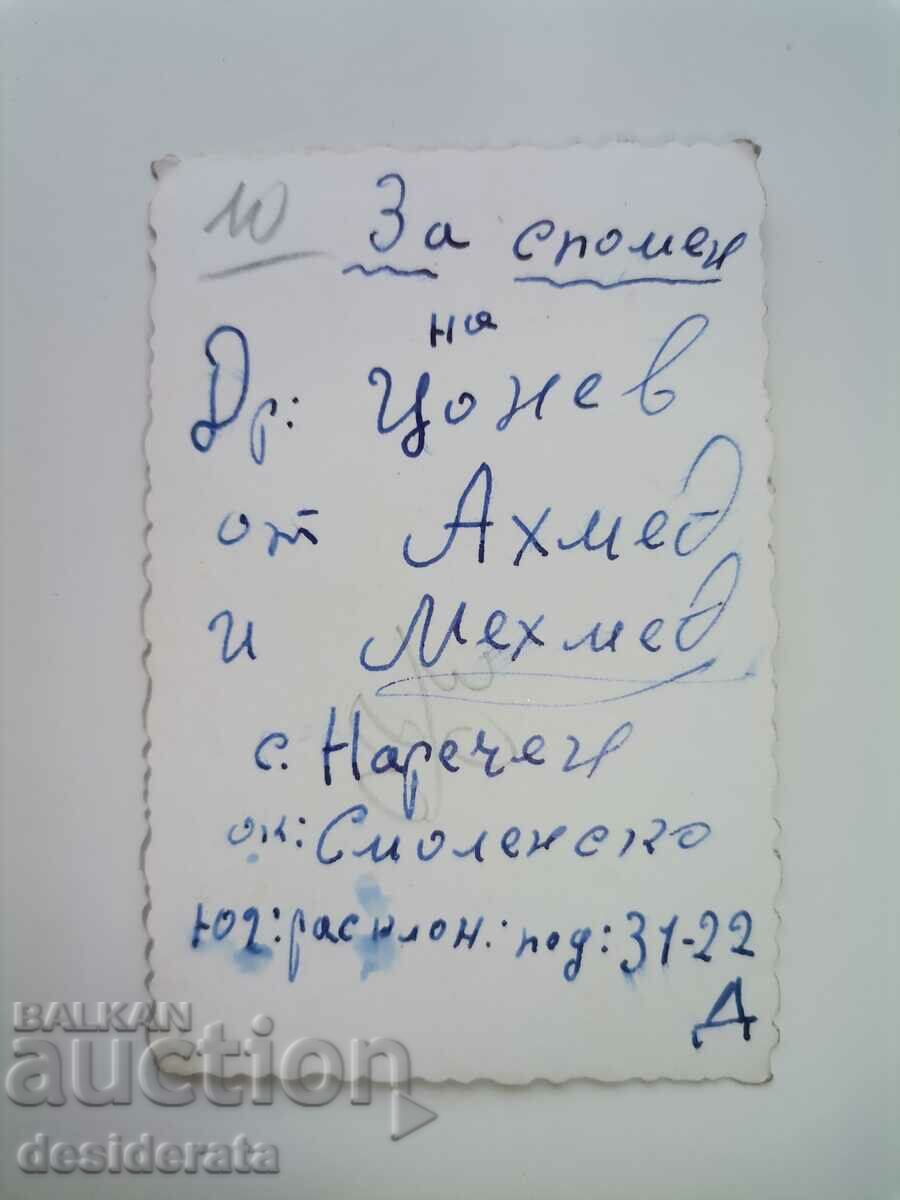 10 За спомен
на
Др: Цонев
от Ахмед
и Мехмед
с. Наречен
ок: Смоленско
Юг: расклон: под: 31-22
Д
BALKAN
auction
desiderata